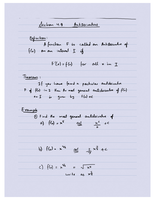 Section 4.8 Antiderivatives
Definition:
A function F is called an Antiderivative of
f(x) on an interval I if
F'(x) = f(x) for all x in I
Theorem:
If you have found a particular antiderivative
F of f(x) on I then the most general antiderivative of f(x)
on I is given by F(x) + c
Example
1) Find the most general antiderivative of
a) f(x) =
b) f(x) =
c) f(x) =
write as